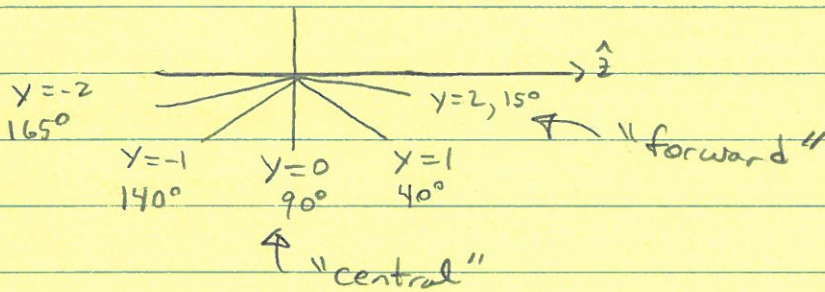 ẑ
y=-2
165°
y=2, 15°
"forward"
y=-1
140°
y=0
90°
y=1
40°
"central"